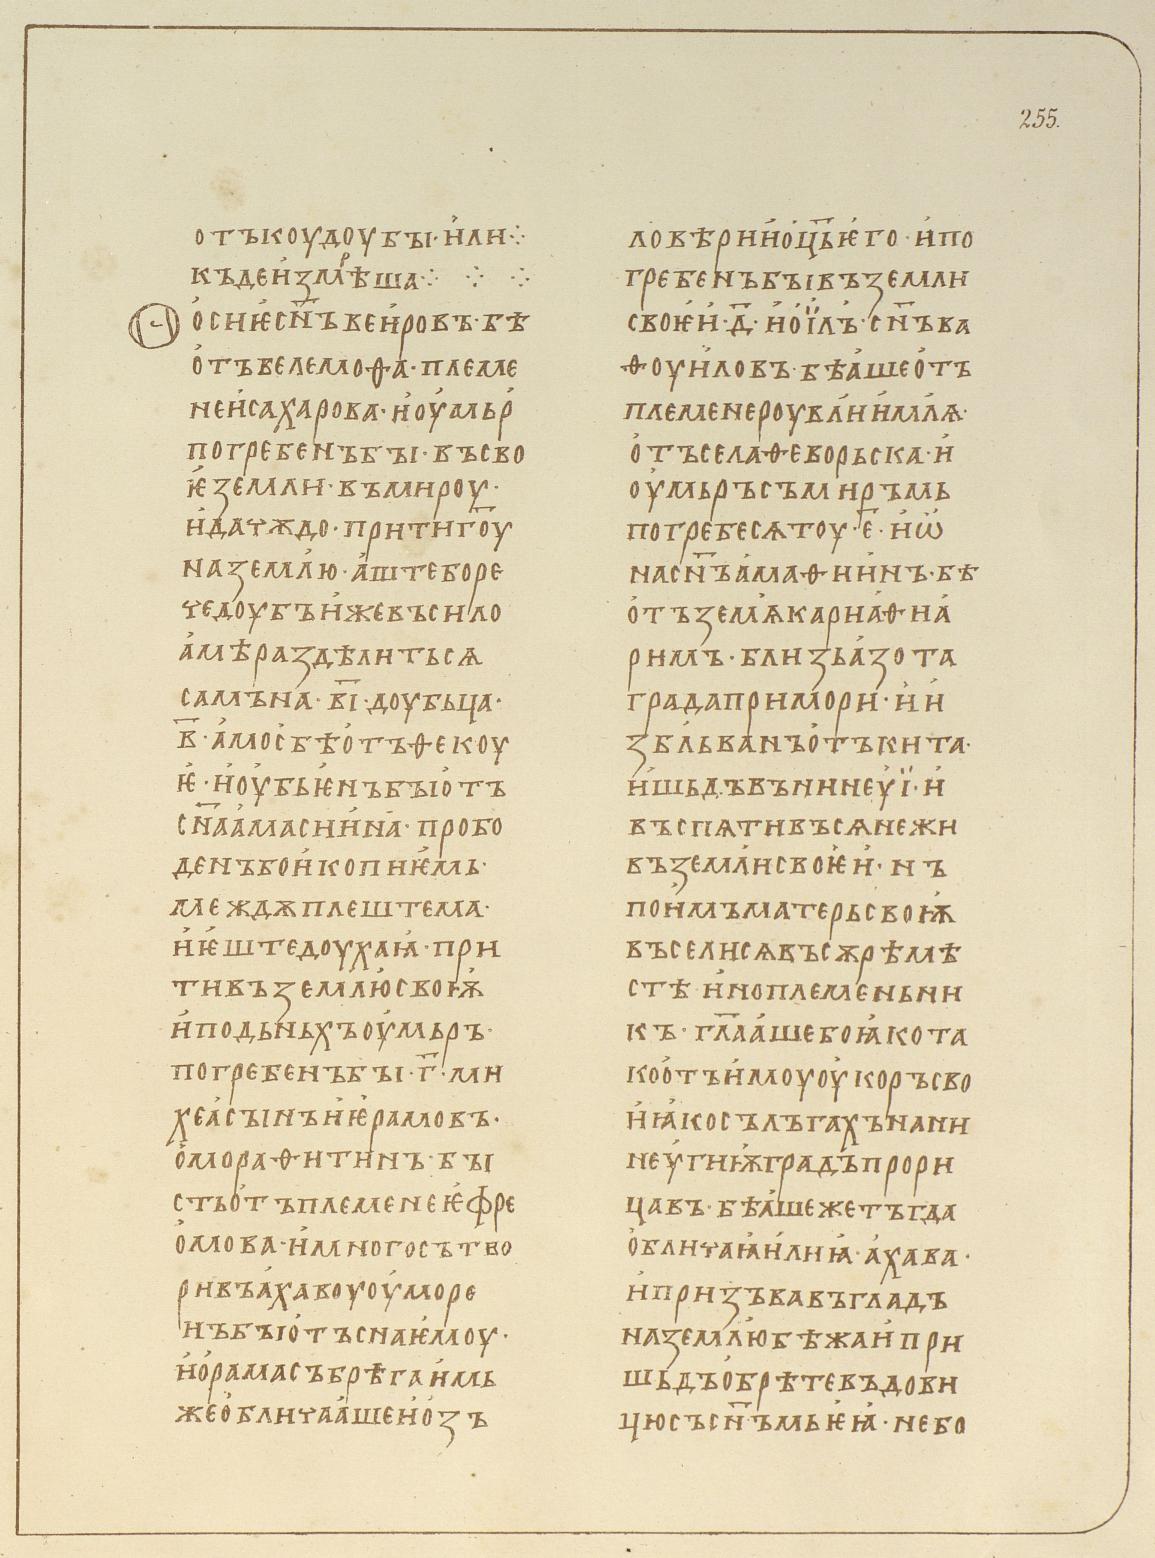 255.
отъкоудоубꙑ· и҆ли⁘
къдеи҆змѣрша⁘ ⁘ ⁘
о҆сиѥ҆сн҃ъвеи҆ровъ·бѣ
о҆тъвелемоѳа҆·племе
неи҆сахарова·и҆оу҆мьр҆
погребенъбꙑ·въсво
ѥ҆земли·въмироу·
и҆дачѫдо·притиго҃у
наземл҆ю·а҆штеборе
чедоубъи҆жевъсило
а҆мѣраздѣлитьсѧ
самъна·в҃і·доубьца·
в҃·а҆мосбѣо҆тъѳекоу
ѥ҆·и҆оу҆бьѥ҆нъбꙑо҆тъ
сн҃аа҆масии҆на҆·пробо
денъбои҆копиѥ҆мь·
междѫплештема·
и҆ѥ҆штедоухаꙗ҆·при
тивъземл҆ю҆своѭ҆
и҆подьньхъоу҆мьръ·
погребенъбꙑ·г҃·ми
хеа҆сꙑнъи҆ѥ҆рамовъ·
о҆мораѳитинъ·бꙑ
стьо҆тъплеменеѥ҆фре
о҆мова·и҆многосътво
ривъа҆хавоуоу҆море
нъбꙑо҆тъснаѥ҆моу·
и҆о҆рамасъбрѣгаи҆мь
жео҆бличаа҆шеи҆о҆зъ
ловѣрии҆о҆ц҃ьѥ҆го·и҆по
гребенъбꙑвъземли
своѥ҆и҆·д҃·и҆о҆ї҆лъ·сн҃ъва
ѳоуи҆ловъ·бѣа҆шео҆тъ
племенероувл҆и҆и҆мл҆ѧ·
о҆тъселаѳеворьска·и҆
оу҆мьръсъмиръмь
погребесѧтоу·е҃·и҆ѡ҆
насн҃ъа҆маѳии҆нъ·бѣ
о҆тъземл҆ѧкарна҆ѳиа҆
римъ·близьа҆зота
градаприм҆ори·и҆и҆
збл҆ьванъо҆тъкита·
и҆шьдъвънинеу҆ї·и҆
въспѧтивъсѧнежи
въземл҆исвоѥ҆и҆·нъ
пои҆мъматерьсвоѭ҆
въселисѧвъсѫрѣмѣ
стѣи҆ноплем҆еньни
къ·гл҃аа҆шебоꙗ҆кота
коо҆тъи҆моуоу҆коръсво
и҆ꙗ҆косълъгахънани
неу҆гиѭ҆градъ҆прори
цавъ·бѣа҆шежетъгда
о҆бличаꙗ҆и҆лиꙗ҆·а҆хава·
и҆призъвавъгладъ
наземл҆ю҆бѣжаи҆при
шьдъо҆брѣтевъдови
цюсъсн҃ъмьѥ҆ꙗ҆·небо